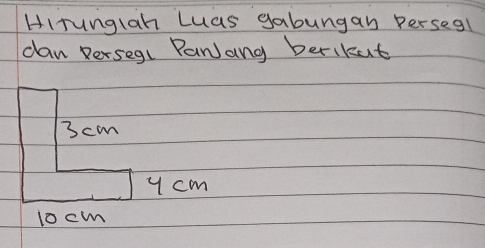 Hitunglah Luas gabungan Persegi
dan Persegi Panjang berikut
3 cm
4 cm
10 cm